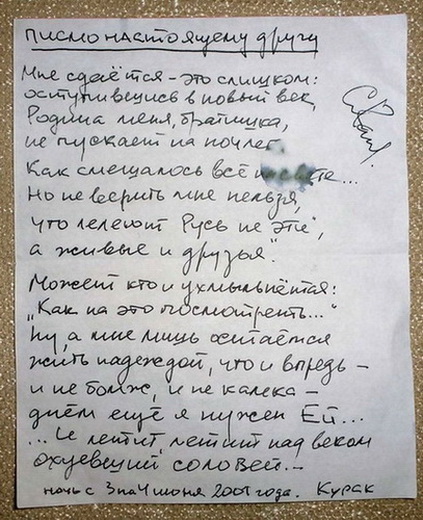 ПИСМО НАСТОЯЩЕМУ ДРУГУ
Мне сдаётся - это слишком:
оступившись в новый век,
Родина меня, братишка,
не пускает на ночлег.
Как смешалось всё на свете...
Но не верить мне нельзя,
что лелеют Русь не "эти",
а живые и друзья.
Может кто и ухмыльнётся:
"Как на это посмотреть..."
Ну, а мне лишь остаётся
жить надеждой, что и впредь -
и не бомж, и не калека -
днём ещё я нужен Ей...
... И летит, летит над веком
охуевший соловей. -
ночь с 3 на 4 июня 2001 года. Курак